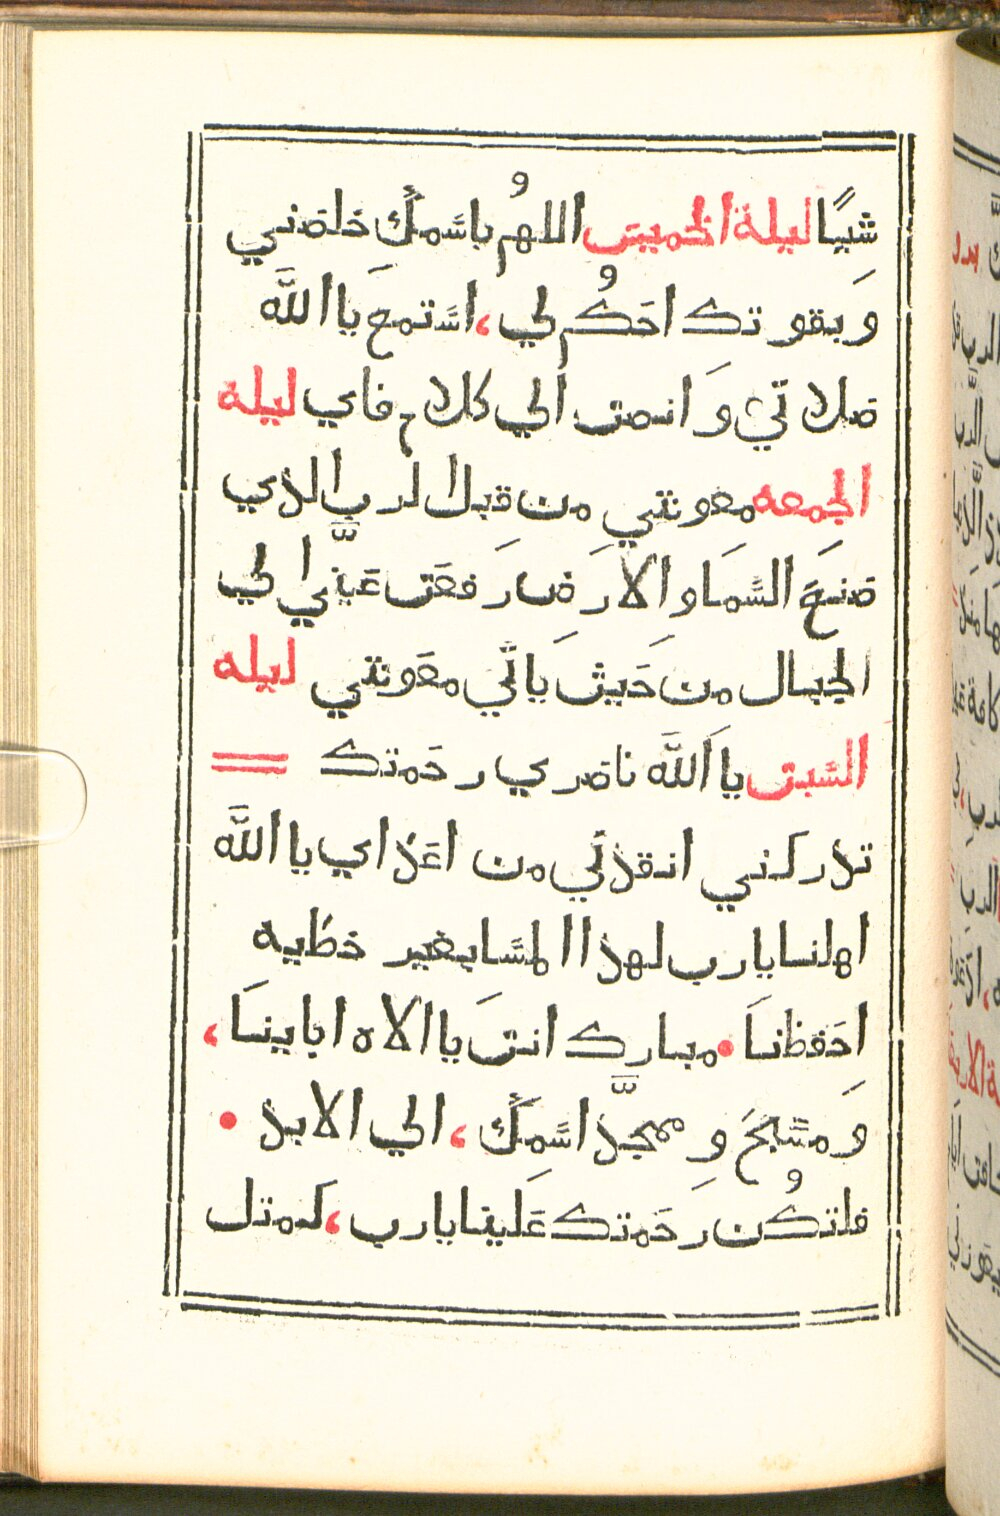 شيًا ليلة الخميس اللهُم باسَمكَ خلصني
وَبقوتك احَكُم لي ، اسَتمعَ يا اللَّه
صلاتي وَ انصت الي كلام فاي ليلة
الجمعه معونتي من قبل الرب الذي
صنعَ السَّمَا والارَض رَفعَت عَينَّي الي
الجبال من حَيث يَاتَي معَونتي ليله
السَّبت يا اَللَّه ناصري رحَمتك
تدركني انقذنَي من اعَذاي يا اللَّه
اهلنا يارب لهذا المسَا بغير خطَيه
احَفظنَا • مبارك انتَ يا الاه اباينَا ،
وَ مسَّبحَ وِ ممجدَّ اسَمكَ ، الي الابد •
فلتكُن رَحَمتك عَلَينا يارب ، كَمتل